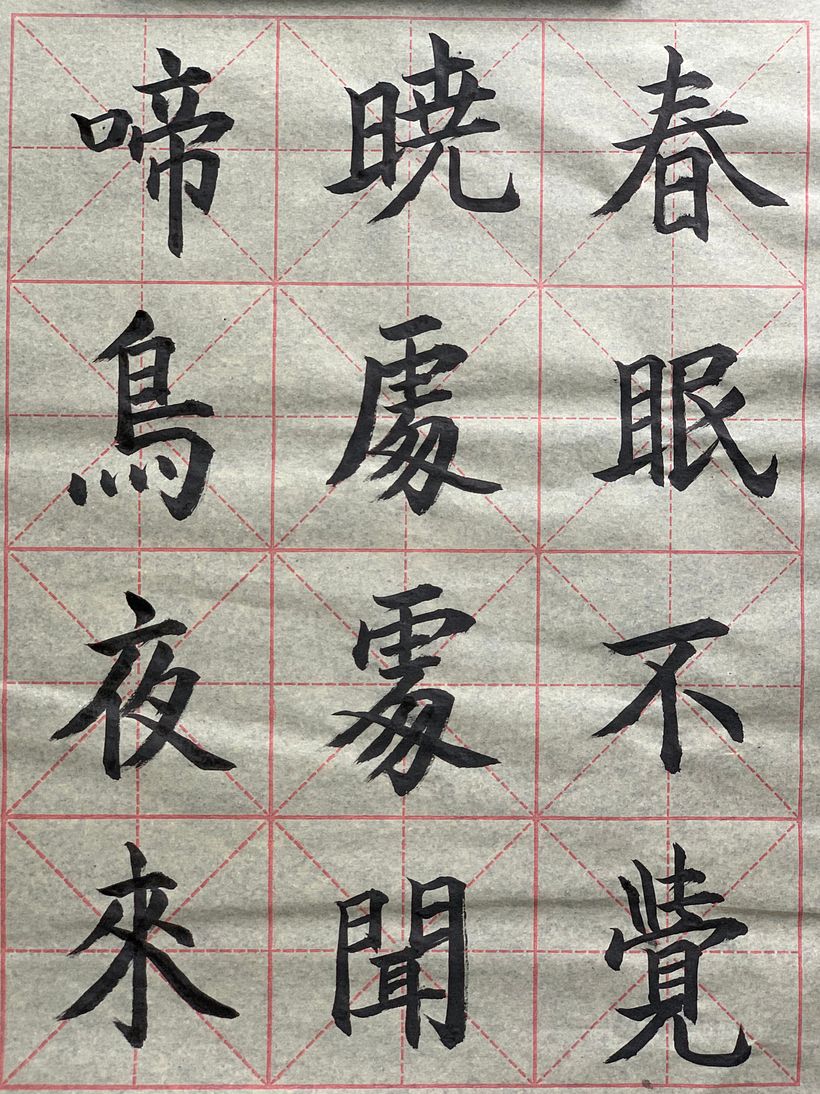 春眠不覺
曉處處聞
啼鳥夜來